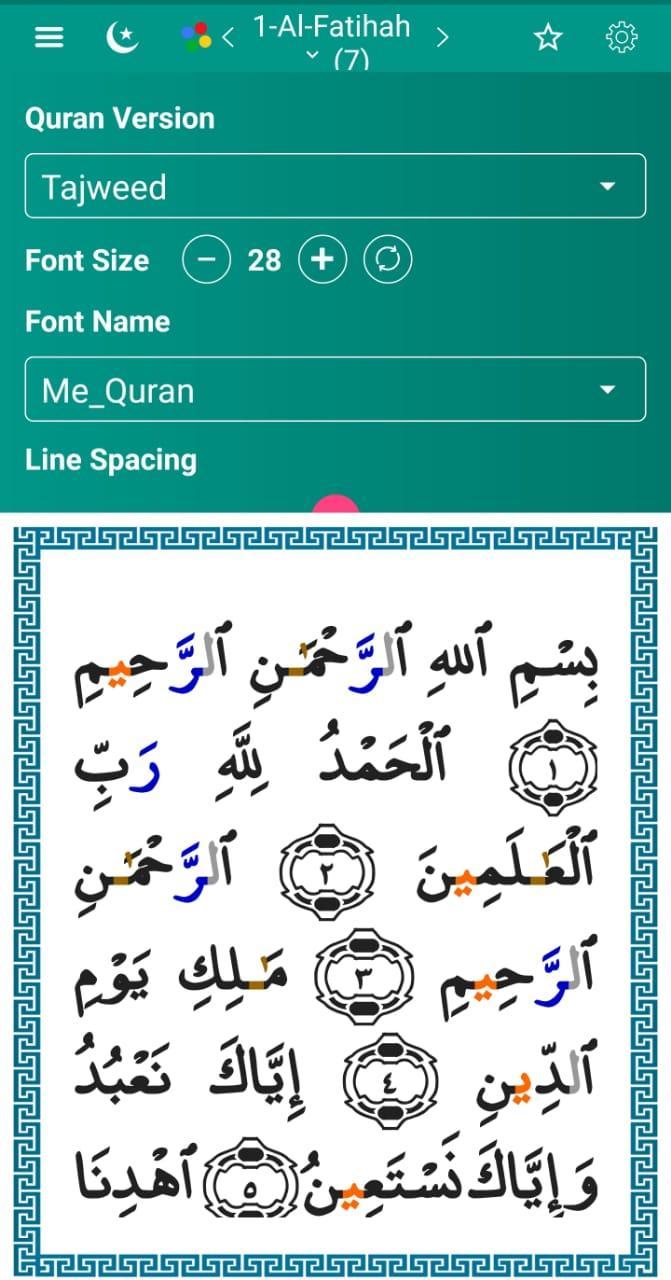 1-Al-Fatihah
(7)
Quran Version
Tajweed
Font Size − 28 +
Font Name
Me_Quran
Line Spacing
بِسْمِ ٱللهِ ٱلرَّحْمَـٰنِ ٱلرَّحِيمِ
١ ٱلْحَمْدُ لِلَّهِ رَبِّ
ٱلْعَـٰلَمِينَ ٢ ٱلرَّحْمَـٰنِ
ٱلرَّحِيمِ ٣ مَـٰلِكِ يَوْمِ
ٱلدِّينِ ٤ إِيَّاكَ نَعْبُدُ
وَإِيَّاكَ نَسْتَعِينُ ٥ ٱهْدِنَا